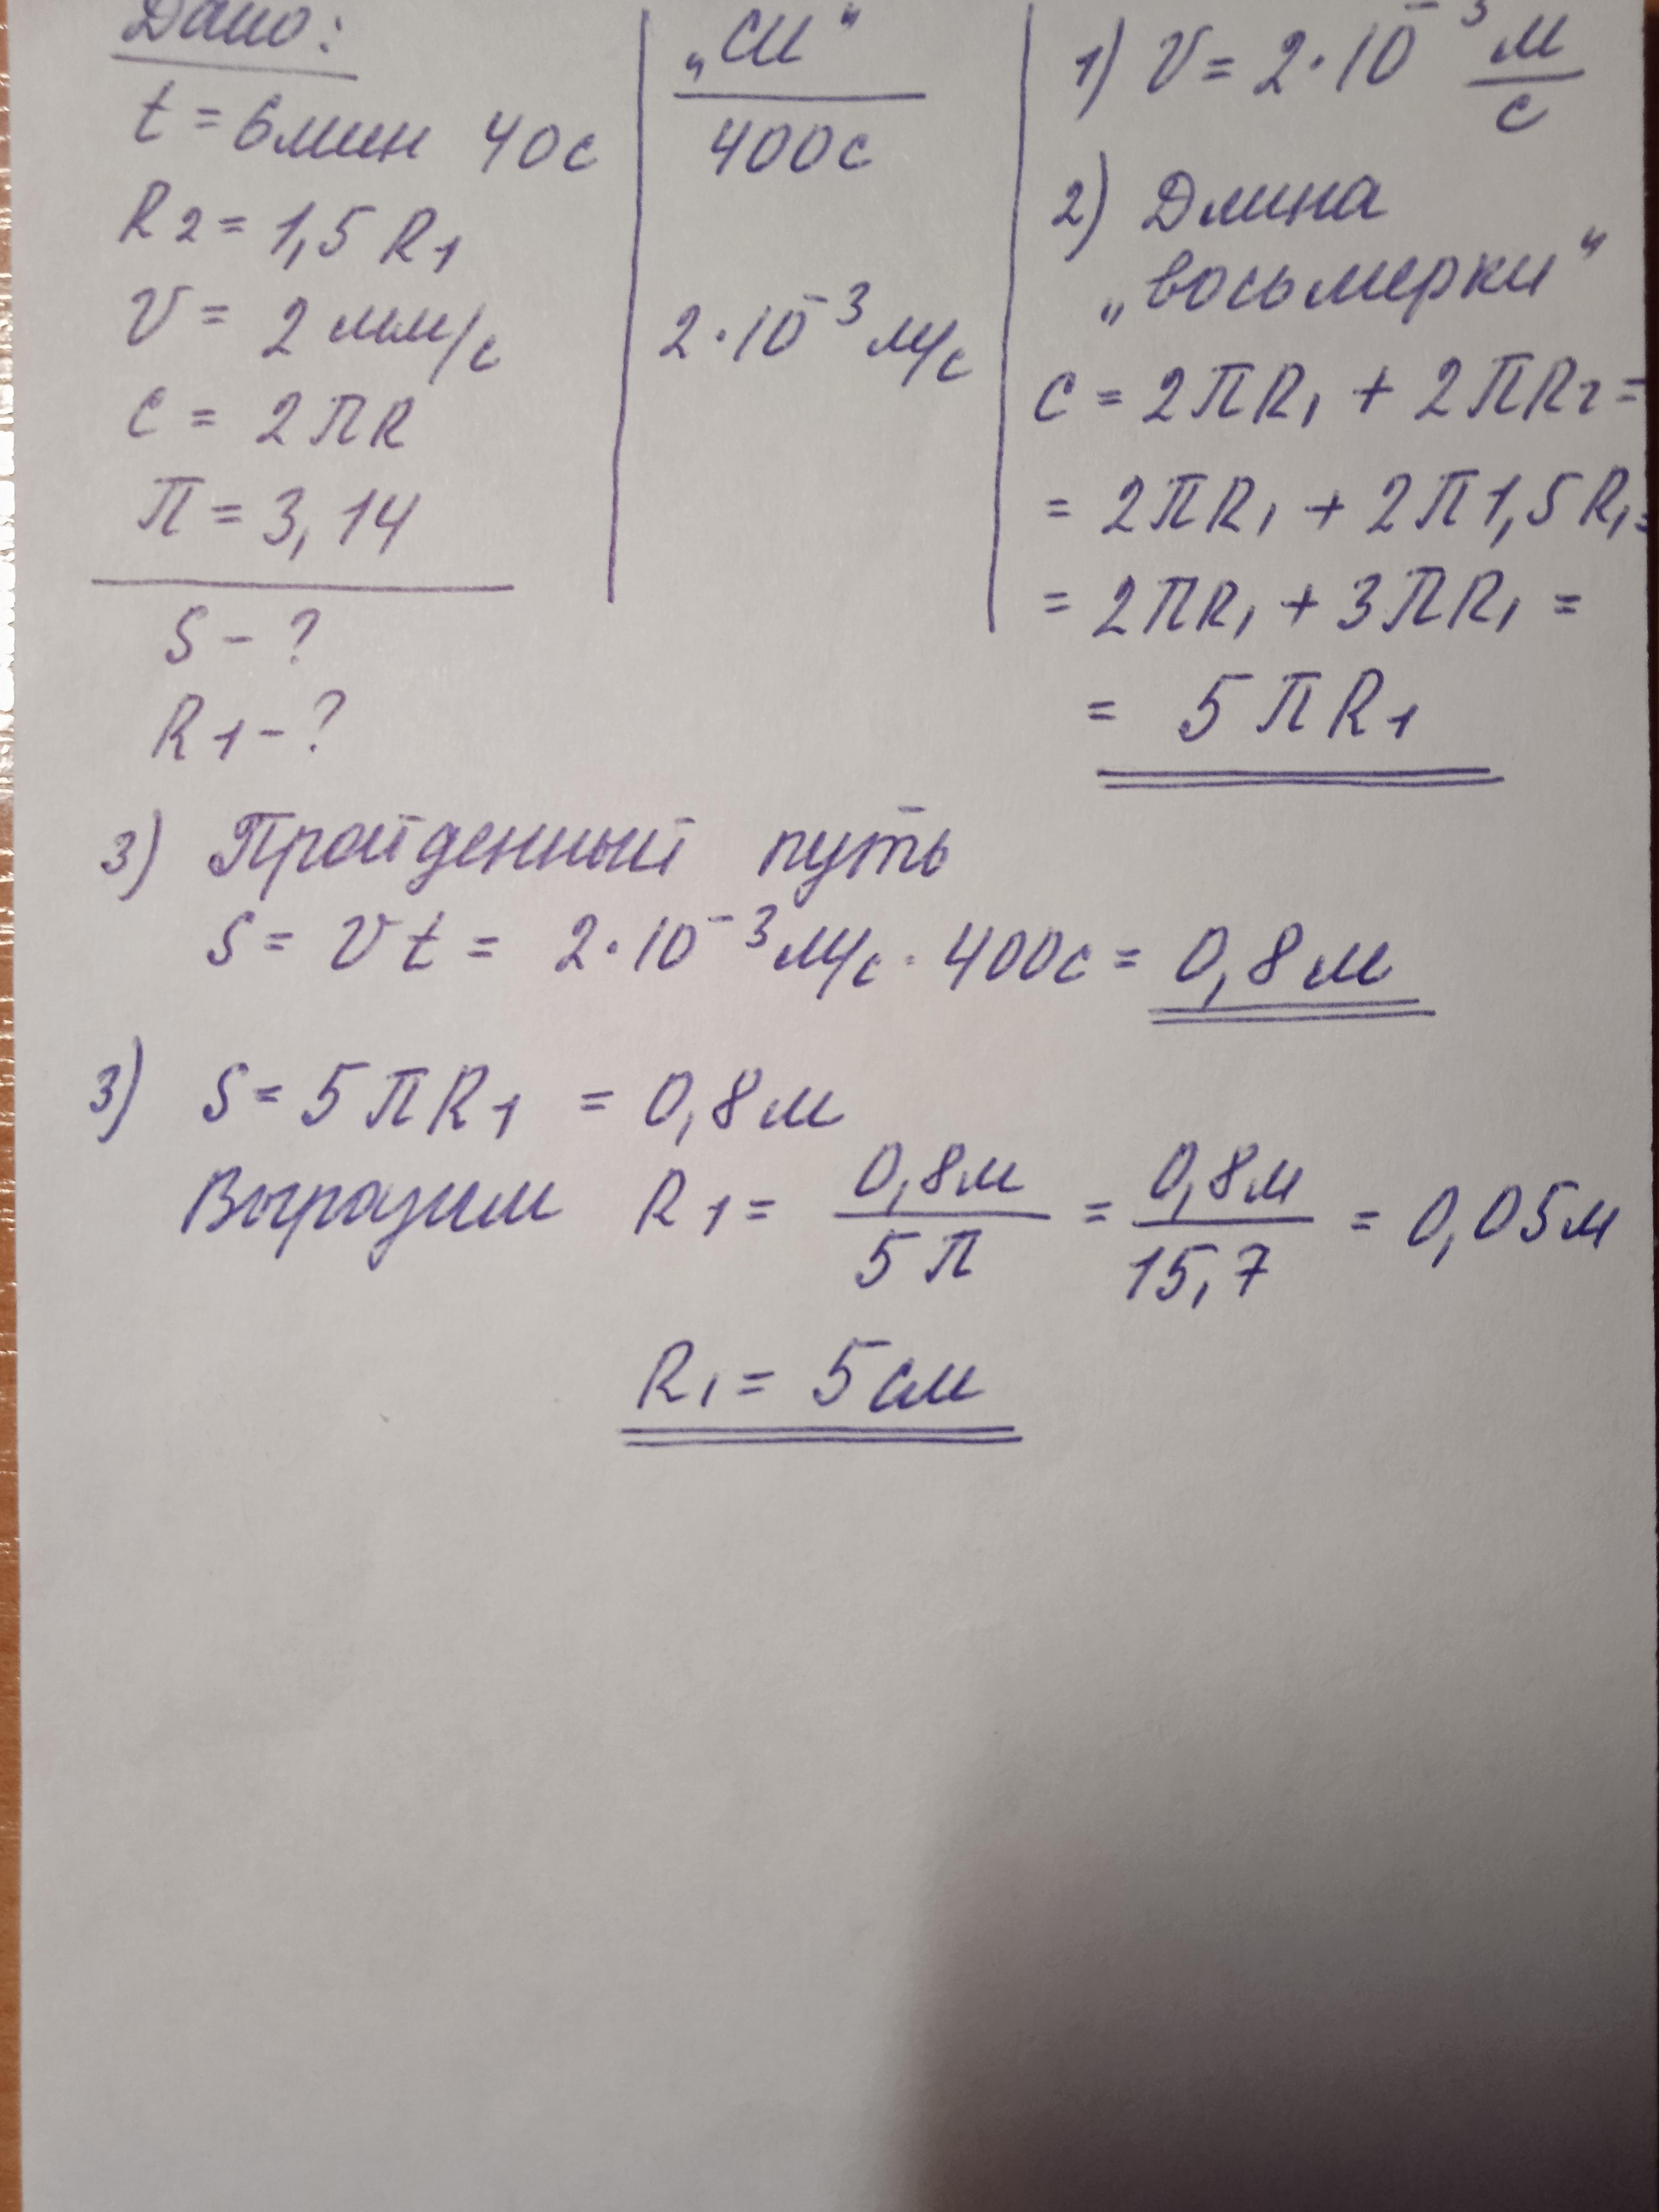 Дано:
t = 6мин 40с
R2 = 1,5 R1
v = 2 мм/с
C = 2ПR
П = 3,14
S - ?
R1 - ?
„СИ“
400с
2·10⁻³ м/с
1) v = 2·10⁻³ м/с
2) Длина
„восьмерки“
C = 2ПR1 + 2ПR2 =
= 2ПR1 + 2П1,5R1 =
= 2ПR1 + 3ПR1 =
= 5ПR1
3) Пройденный путь
S = vt = 2·10⁻³ м/с · 400с = 0,8м
3) S = 5ПR1 = 0,8м
Выразим R1 = 0,8м/5П = 0,8м/15,7 = 0,05м
R1 = 5см